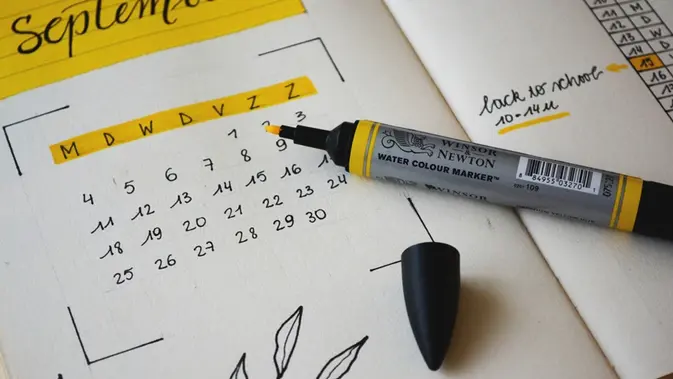 Septem
M D W D V Z Z
1 2 3
4 5 6 7 8 9
11 12 13 14 15 16 1
18 19 20 21 22 23 24
25 26 27 28 29 30
WINSOR
& NEWTON
WATER COLOUR MARKER™
109
8 84955 03270 1
WINSOR
M
14 D
W
D
15
16 Z
back to school
10-14u